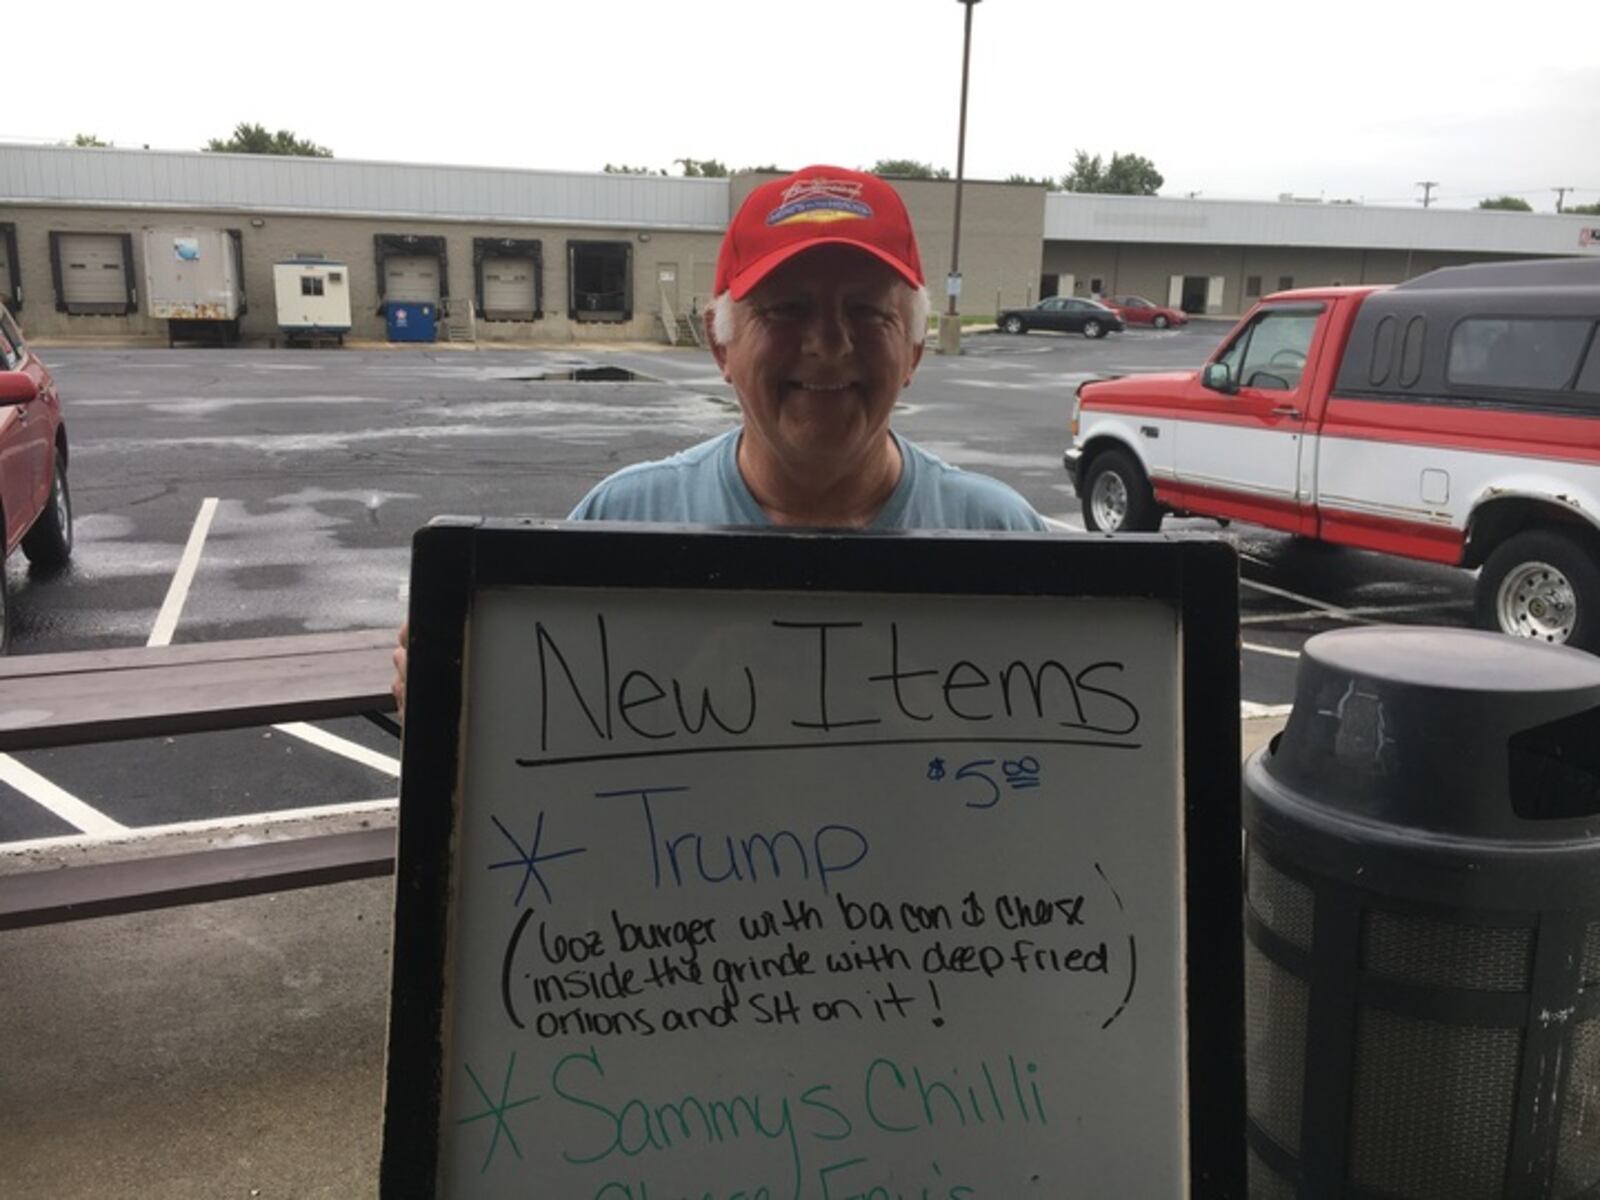 Budweiser
New Items
$5.00
* Trump
(6oz burger with bacon & Cheese
inside the grinde with deep fried
onions and SH on it!)
* Sammy's Chilli
Cheese Fry's